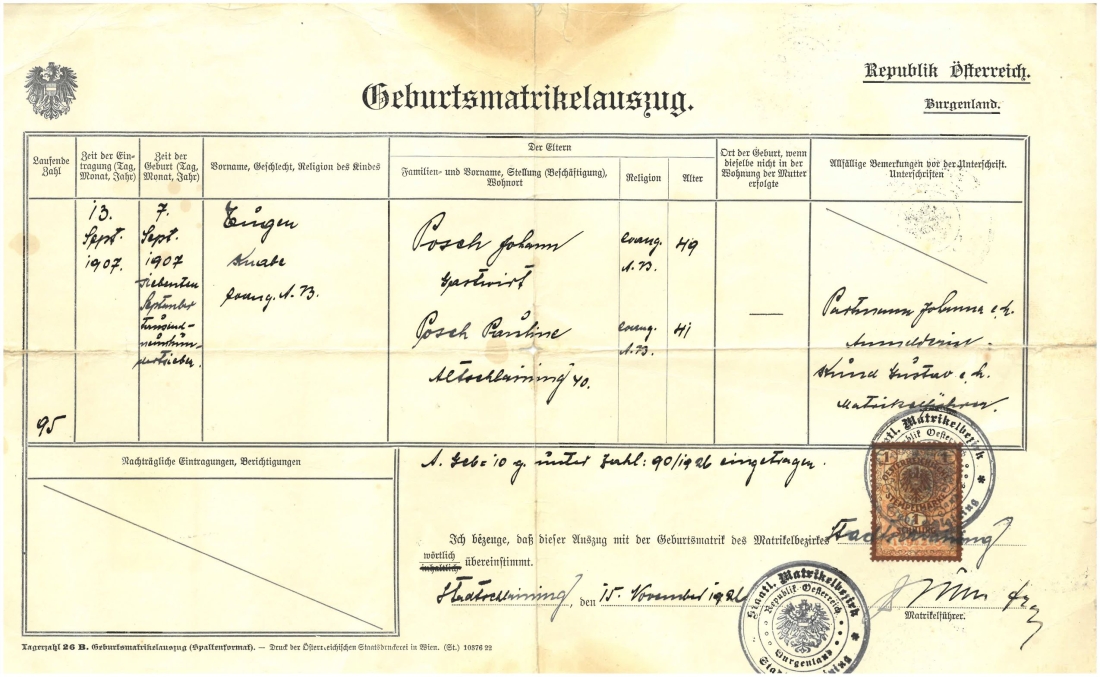 Republik Österreich.
Burgenland.
Geburtsmatrikelauszug.
Laufende Zahl
Zeit der Eintragung (Tag, Monat, Jahr)
Zeit der Geburt (Tag, Monat, Jahr)
Vorname, Geschlecht, Religion des Kindes
Der Eltern
Familien- und Vorname, Stellung (Beschäftigung), Wohnort
Religion
Alter
Ort der Geburt, wenn dieselbe nicht in der Wohnung der Mutter erfolgte
Allfällige Bemerkungen vor der Unterschrift. Unterschriften
95
13.
Sept.
1907.
7.
Sept.
1907
siebenten
September
tausend-
neunhun-
dertsieben.
Eugen
Knabe
evang. A. B.
Posch Johann
Gastwirt
Posch Pauline
Altschlaining 40.
evang.
A. B.
49
evang.
A. B.
41
Johanna e. h.
Kund Gustav e. h.
Matrikelführer.
Nachträgliche Eintragungen, Berichtigungen
A. Geb: 10 g. unter Zahl: 90/1926 eingetragen.
Ich bezeuge, daß dieser Auszug mit der Geburtsmatrik des Matrikelbezirkes Stadtschlaining
wörtlich
inhaltlich
übereinstimmt.
Stadtschlaining, den 15. November 1926
Matrikelführer.
Staatl. Matrikelbezirk
Republik Oesterreich
Burgenland
1
STEMPELMARKE
1
Staatl. Matrikelbezirk *
Republik Oesterreich
Burgenland
Lagerzahl 26 B. Geburtsmatrikelauszug (Spaltenformat). — Druck der Österreichischen Staatsdruckerei in Wien. (St.) 10376 22